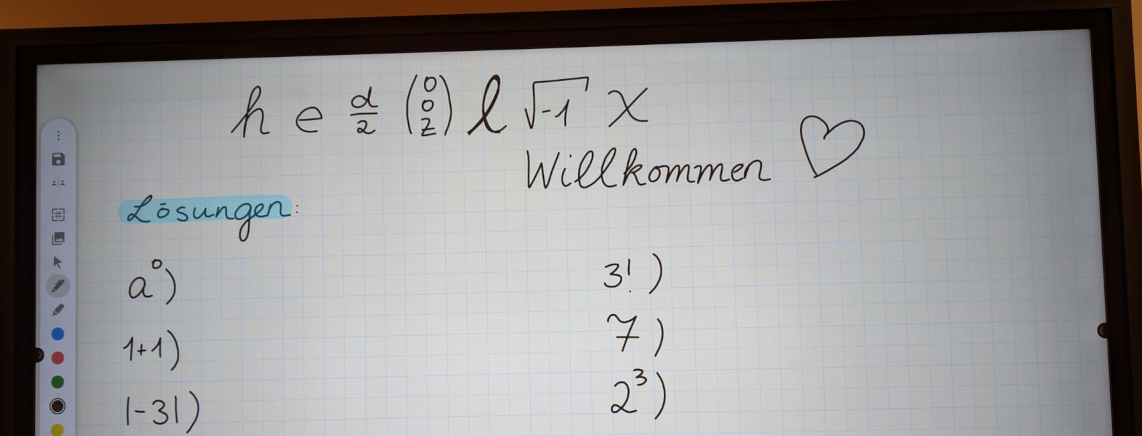 h e d/2 (0 0 z) l √-1 x
Willkommen ♡
Lösungen:
a⁰) 3!)
1+1) 7)
|-3|) 2³)